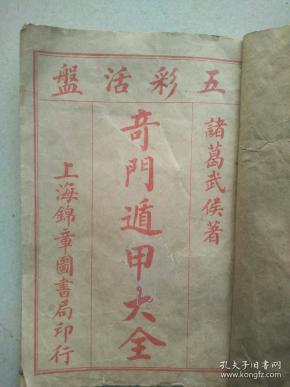 五彩活盤
諸葛武侯著
奇門遁甲大全
上海錦章圖書局印行
孔夫子旧书网